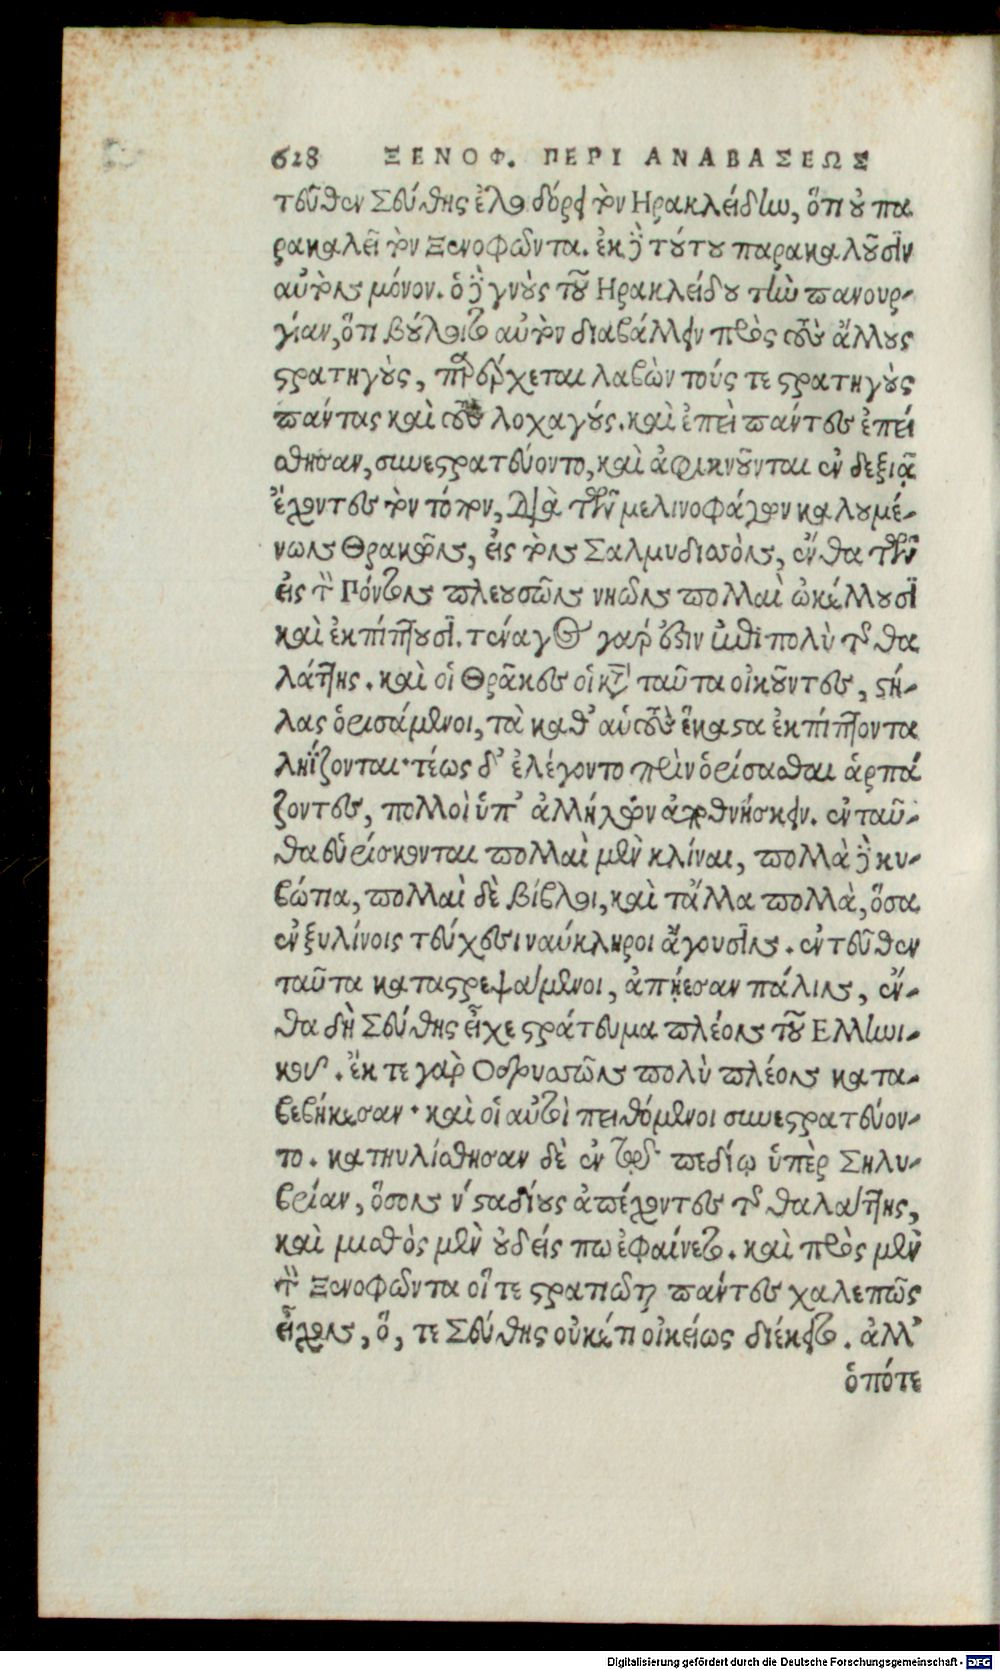 628 ΞΕΝΟΦ. ΠΕΡΙ ΑΝΑΒΑΣΕΩΣ
τεῦθεν Σεύθης ἐλοιδόρει τὸν Ἡρακλείδην, ὅτι οὐ πα
ρακαλεῖ τὸν Ξενοφῶντα. ἐκ δὲ τούτου παρακαλοῦσιν
αὐτὸν μόνον. ὁ δὲ γνοὺς τοῦ Ηρακλείδου τὴν πανουρ-
γίαν, ὅτι βούλοιτο αὐτὸν διαβάλλειν πρὸς τοὺς ἄλλους
στρατηγοὺς, παρέρχεται λαβὼν τούς τε στρατηγοὺς
πάντας καὶ τοὺς λοχαγούς. καὶ ἐπεὶ πάντες ἐπεί
σθησαν, συνεστρατεύοντο, καὶ ἀφικνοῦνται ἐν δεξιᾷ
ἔχοντες τὸν πόντον, διὰ τῶν μελινοφάγων καλουμέ-
νων Θρακῶν, εἰς τὸν Σαλμυδησσὸν, ἔνθα τῶν
εἰς τὸν Πόντον πλευσῶν νηῶν πολλαὶ ὠκέλλουσι
καὶ ἐκπίπτουσι. τέναγος γάρ ἐστιν ἐπὶ πολὺ τῆς θα
λάττης. καὶ οἱ Θρᾷκες οἱ κατὰ ταῦτα οἰκοῦντες, στή-
λας ὁρισάμενοι, τὰ καθ’ αὑτοὺς ἕκαστα ἐκπίπτοντα
ληΐζονται· τέως δ’ ἐλέγοντο πρὶν ὁρίσασθαι ἁρπά
ζοντες, πολλοὶ ὑπ’ ἀλλήλων ἀποθνήσκειν. ἐνταῦ-
θα εὑρίσκονται πολλαὶ μὲν κλίναι, πολλὰ δὲ κι-
βώτια, πολλαὶ δὲ βίβλοι, καὶ τἄλλα πολλὰ, ὅσα
ἐν ξυλίνοις τεύχεσι ναύκληροι ἄγουσιν. ἐντεῦθεν
ταῦτα καταστρεψάμενοι, ἀπῄεσαν πάλιν, ἔν-
θα δὴ Σεύθης εἶχε στράτευμα πλέον τοῦ Ελληνι-
κοῦ. ἔκ τε γὰρ Οδρυσῶν πολὺ πλέον κατα-
βεβήκεσαν· καὶ οἱ αὐτοὶ πειθόμενοι συνεστρατεύον-
το. κατηυλίσθησαν δὲ ἐν τῷ πεδίῳ ὑπὲρ Σηλυ-
βρίαν, ὅσον ν́ σταδίους ἀπέχοντες τῆς θαλάττης,
καὶ μισθὸς μὲν οὐδείς πω ἐφαίνετο. καὶ πρὸς μὲν
τὸν Ξενοφῶντα οἵ τε στρατιῶται πάντες χαλεπῶς
εἶχον, ὅ, τε Σεύθης οὐκέτι οἰκείως διέκειτο. ἀλλ’
ὁπότε
Digitalisierung gefördert durch die Deutsche Forschungsgemeinschaft - DFG